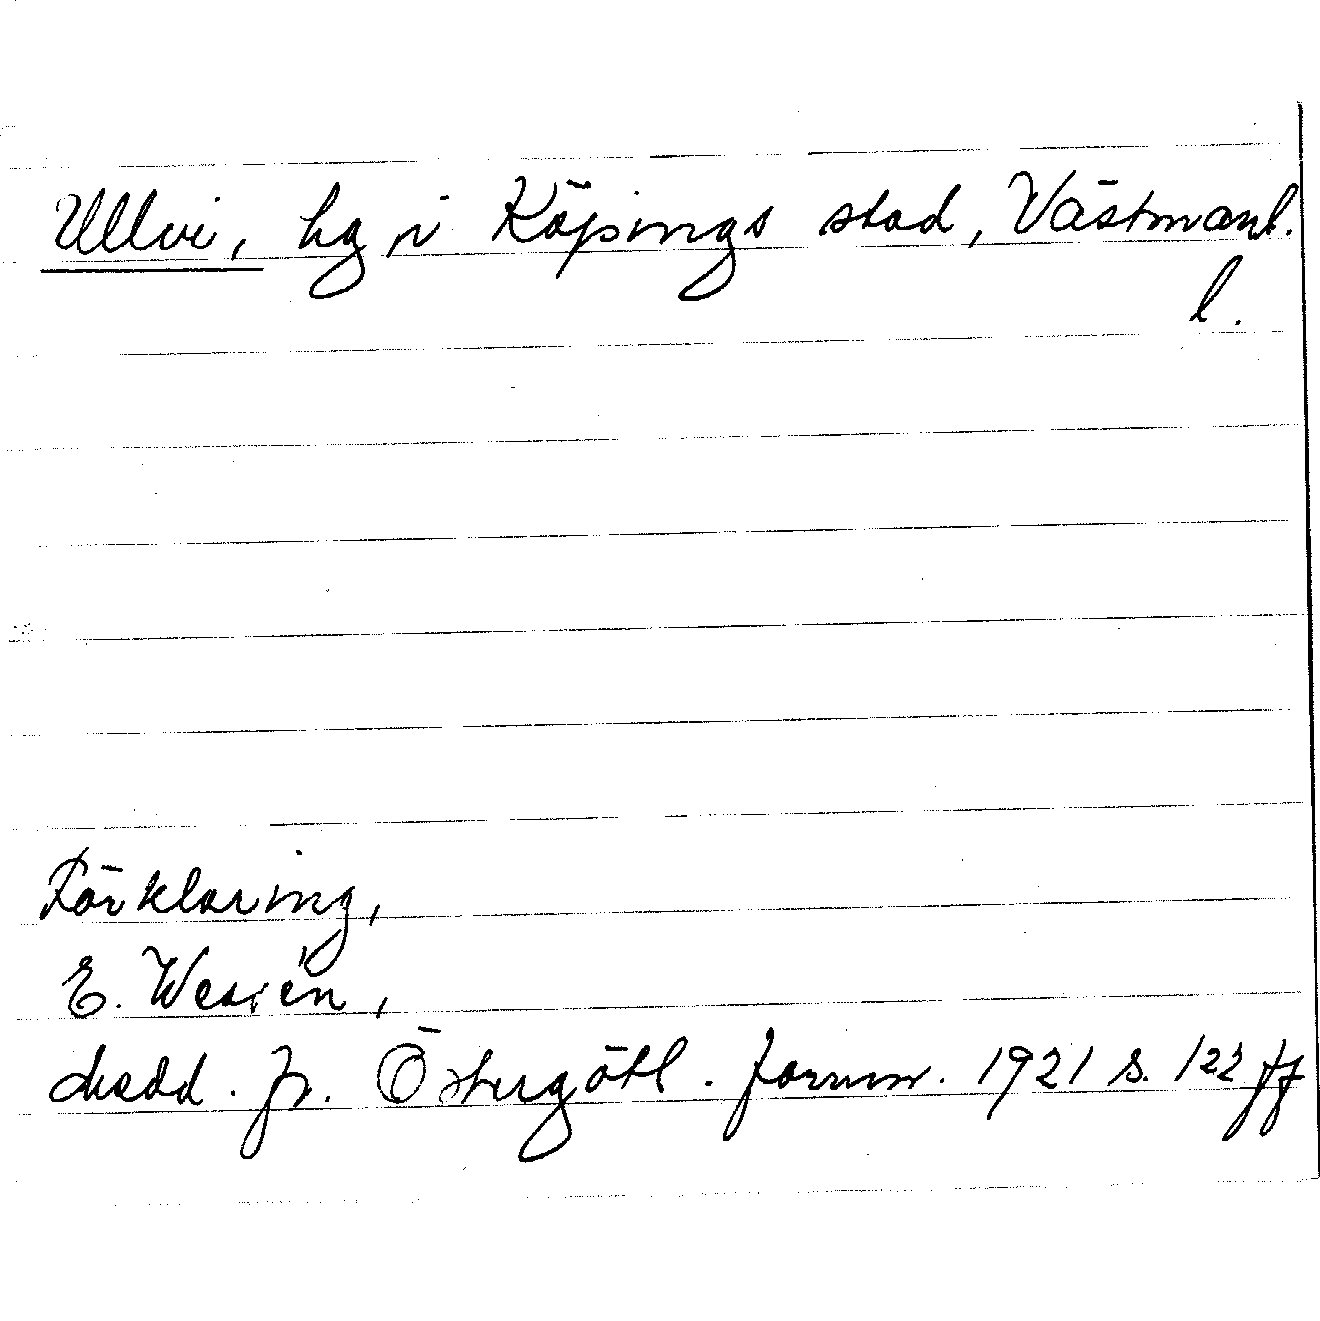 Ullvi, hg i Köpings stad, Västmanl.
l.
Förklaring,
E. Wessén,
Medd. fr. Östergötl. fornm. 1921 s. 122 ff